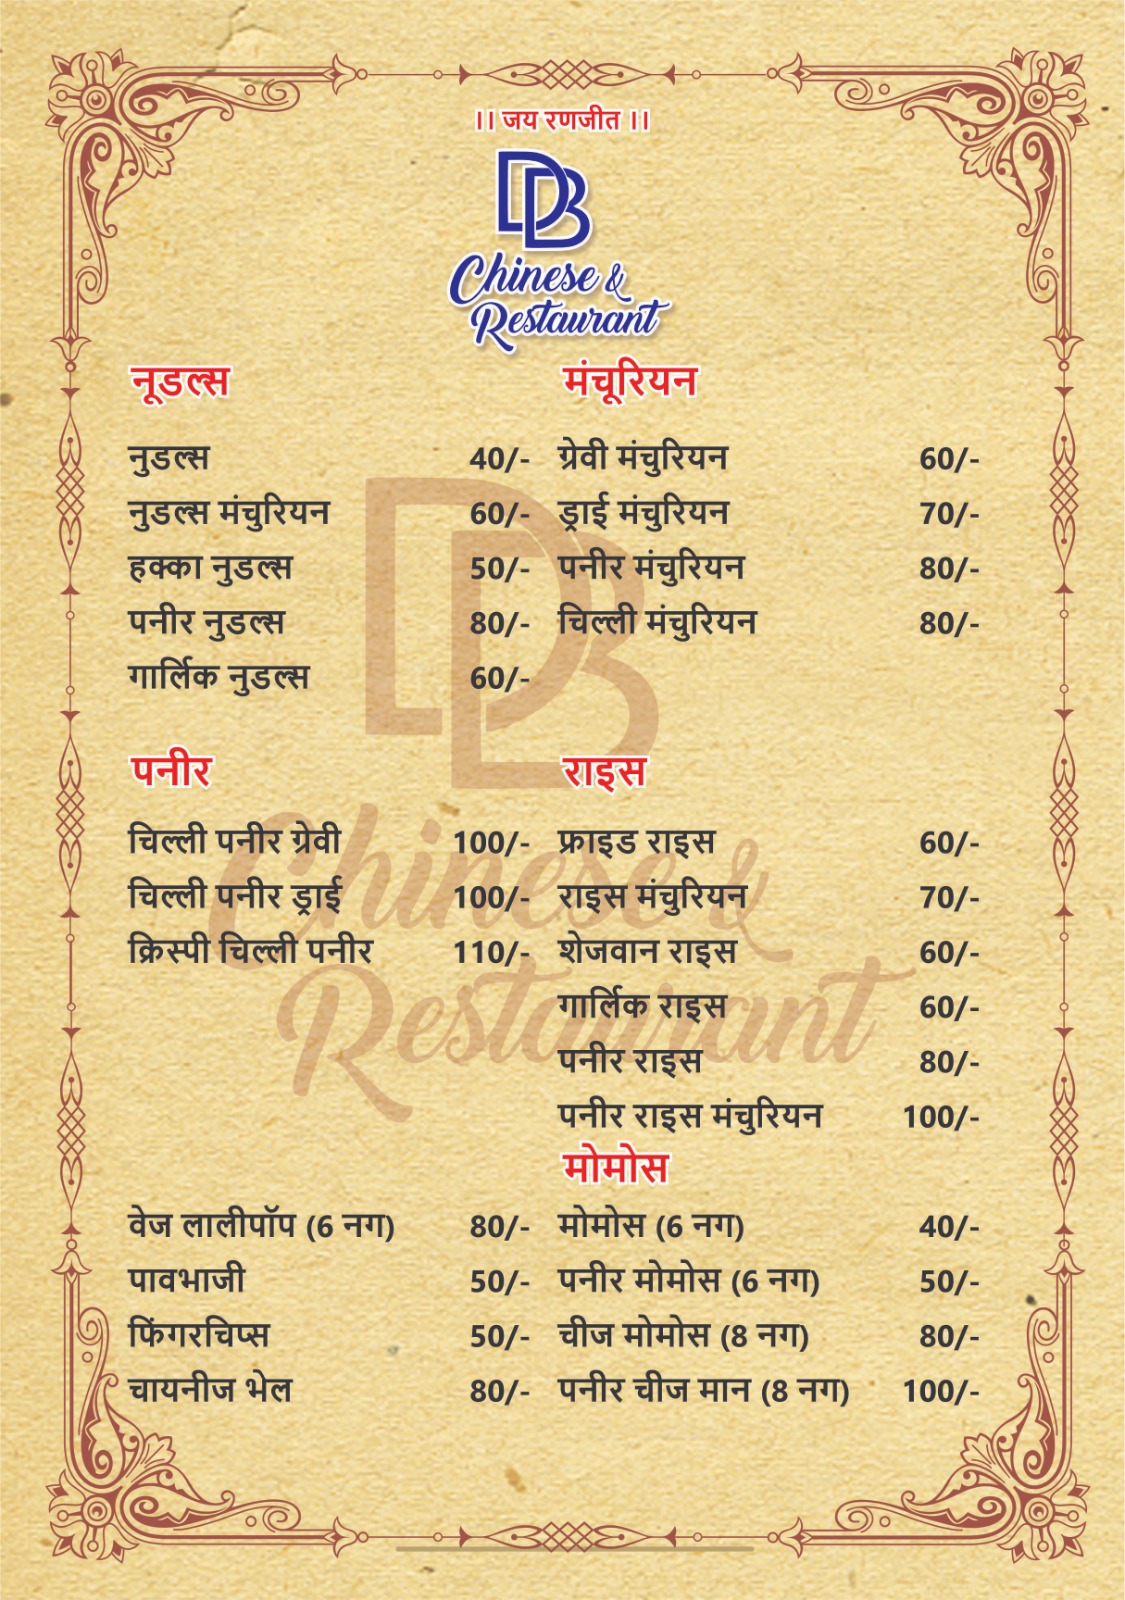 ।। जय रणजीत ।।
DB
Chinese &
Restaurant
नूडल्स
नुडल्स 40/-
नुडल्स मंचुरियन 60/-
हक्का नुडल्स 50/-
पनीर नुडल्स 80/-
गार्लिक नुडल्स 60/-
मंचूरियन
ग्रेवी मंचुरियन 60/-
ड्राई मंचुरियन 70/-
पनीर मंचुरियन 80/-
चिल्ली मंचुरियन 80/-
पनीर
चिल्ली पनीर ग्रेवी 100/-
चिल्ली पनीर ड्राई 100/-
क्रिस्पी चिल्ली पनीर 110/-
राइस
फ्राइड राइस 60/-
राइस मंचुरियन 70/-
शेजवान राइस 60/-
गार्लिक राइस 60/-
पनीर राइस 80/-
पनीर राइस मंचुरियन 100/-
वेज लालीपॉप (6 नग) 80/-
पावभाजी 50/-
फिंगरचिप्स 50/-
चायनीज भेल 80/-
मोमोस
मोमोस (6 नग) 40/-
पनीर मोमोस (6 नग) 50/-
चीज मोमोस (8 नग) 80/-
पनीर चीज मान (8 नग) 100/-
DB
Chinese &
Restaurant